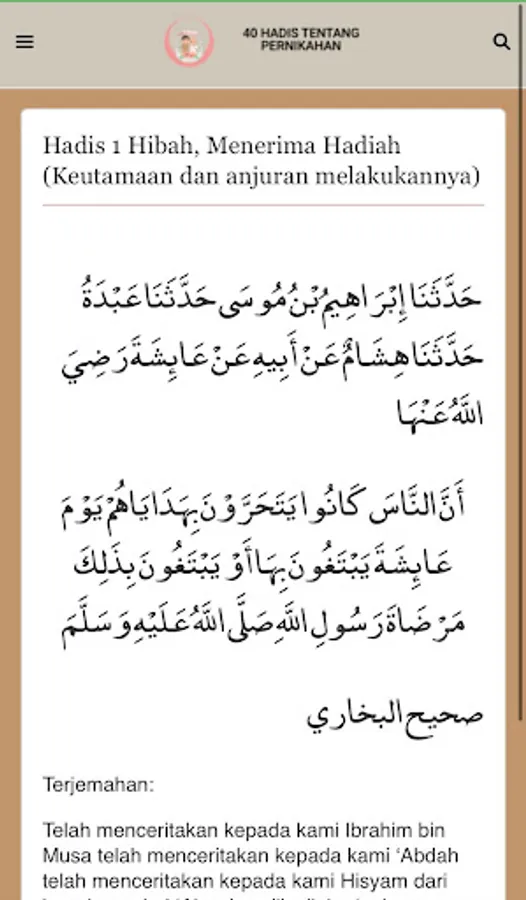 40 HADIS TENTANG
PERNIKAHAN
Hadis 1 Hibah, Menerima Hadiah
(Keutamaan dan anjuran melakukannya)
حَدَّثَنَا إِبْرَاهِيمُ بْنُ مُوسَى حَدَّثَنَا عَبْدَةُ
حَدَّثَنَا هِشَامٌ عَنْ أَبِيهِ عَنْ عَائِشَةَ رَضِيَ
اللَّهُ عَنْهَا
أَنَّ النَّاسَ كَانُوا يَتَحَرَّوْنَ بِهَدَايَاهُمْ يَوْمَ
عَائِشَةَ يَبْتَغُونَ بِهَا أَوْ يَبْتَغُونَ بِذَلِكَ
مَرْضَاةَ رَسُولِ اللَّهِ صَلَّى اللَّهُ عَلَيْهِ وَسَلَّمَ
صحيح البخاري
Terjemahan:
Telah menceritakan kepada kami Ibrahim bin
Musa telah menceritakan kepada kami ‘Abdah
telah menceritakan kepada kami Hisyam dari